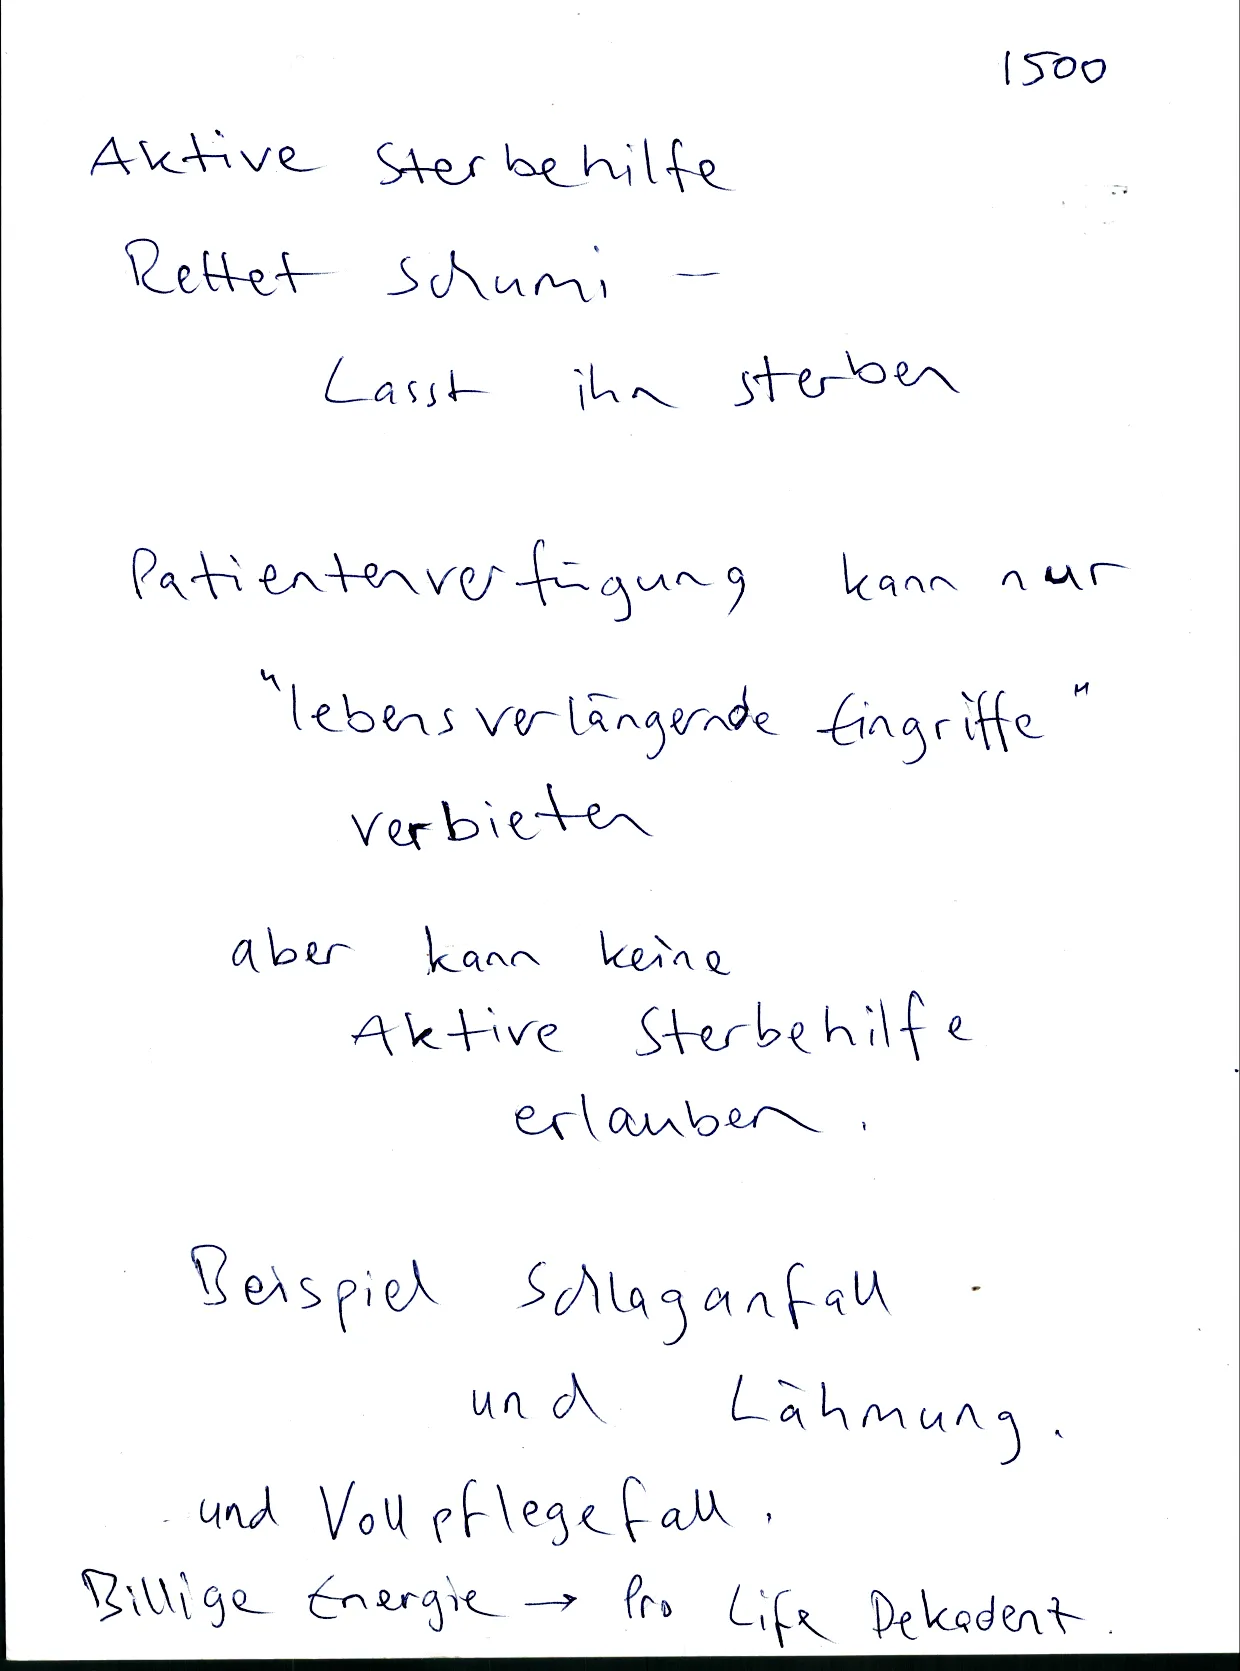 1500
Aktive Sterbehilfe
Rettet Schumi -
Lasst ihn sterben
Patientenverfügung kann nur
"lebensverlängernde Eingriffe"
verbieten
aber kann keine
Aktive Sterbehilfe
erlauben.
Beispiel Schlaganfall
und Lähmung.
und Vollpflegefall.
Billige Energie → Pro Life Dekadent.